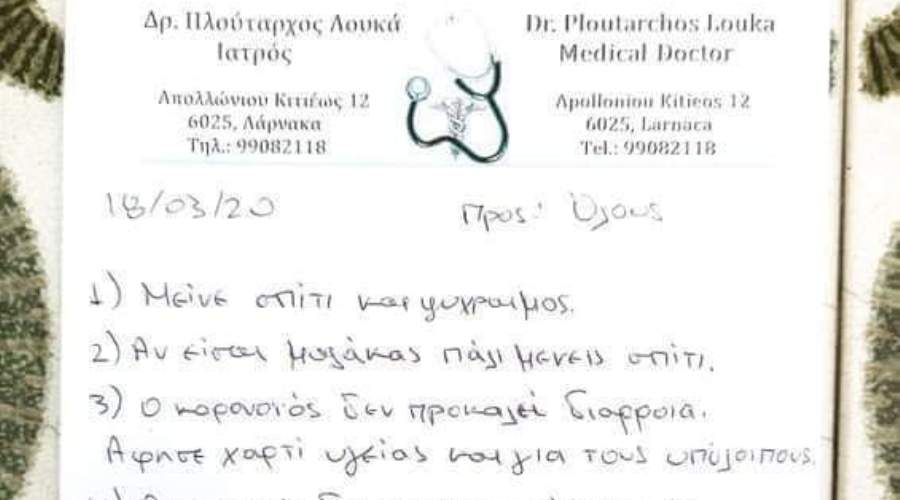 Δρ. Πλούταρχος Λουκά
Ιατρός
Απολλώνιου Κιτιέως 12
6025, Λάρνακα
Τηλ.: 99082118
Dr. Ploutarchos Louka
Medical Doctor
Apolloniou Kitieos 12
6025, Larnaca
Tel.: 99082118
18/03/20
Προς: Όλους
1) Μείνε σπίτι και ψυχραιμος.
2) Αν είσαι μαλάκας πάλι μένεις σπίτι.
3) Ο κορονοιός δεν προκαλεί διάρροια.
Αφησε χαρτί υγείας και για τους υπόλοιπους.